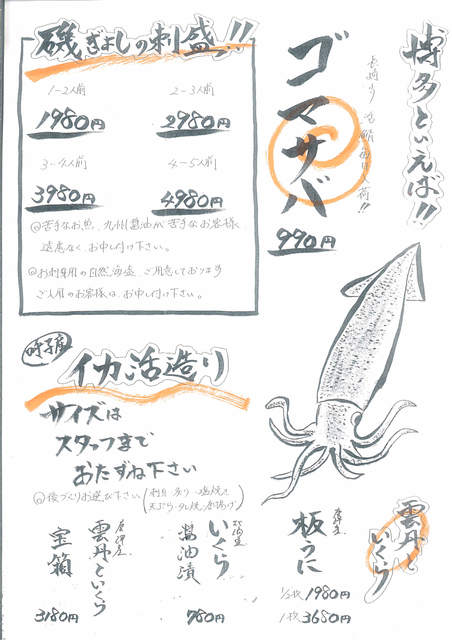 博多といえば!!
ゴマサバ
990円
磯ぎよしの刺盛!!
1-2人前
1980円
2-3人前
2980円
3-4人前
3980円
4-5人前
4980円
◎苦手なお魚、九州醤油が苦手なお客様
遠慮なくお申し付け下さい。
◎お刺身用の自然海塩ご用意しております
ご入用のお客様はお申し付け下さい。
呼子産
イカ活造り
サイズは
スタッフまで
おたずね下さい
◎後づくりお選び下さい
雲丹といくら
板うに
1/2枚 1980円
1枚 3680円
いくら
醤油漬
780円
雲丹といくら
宝箱
3180円